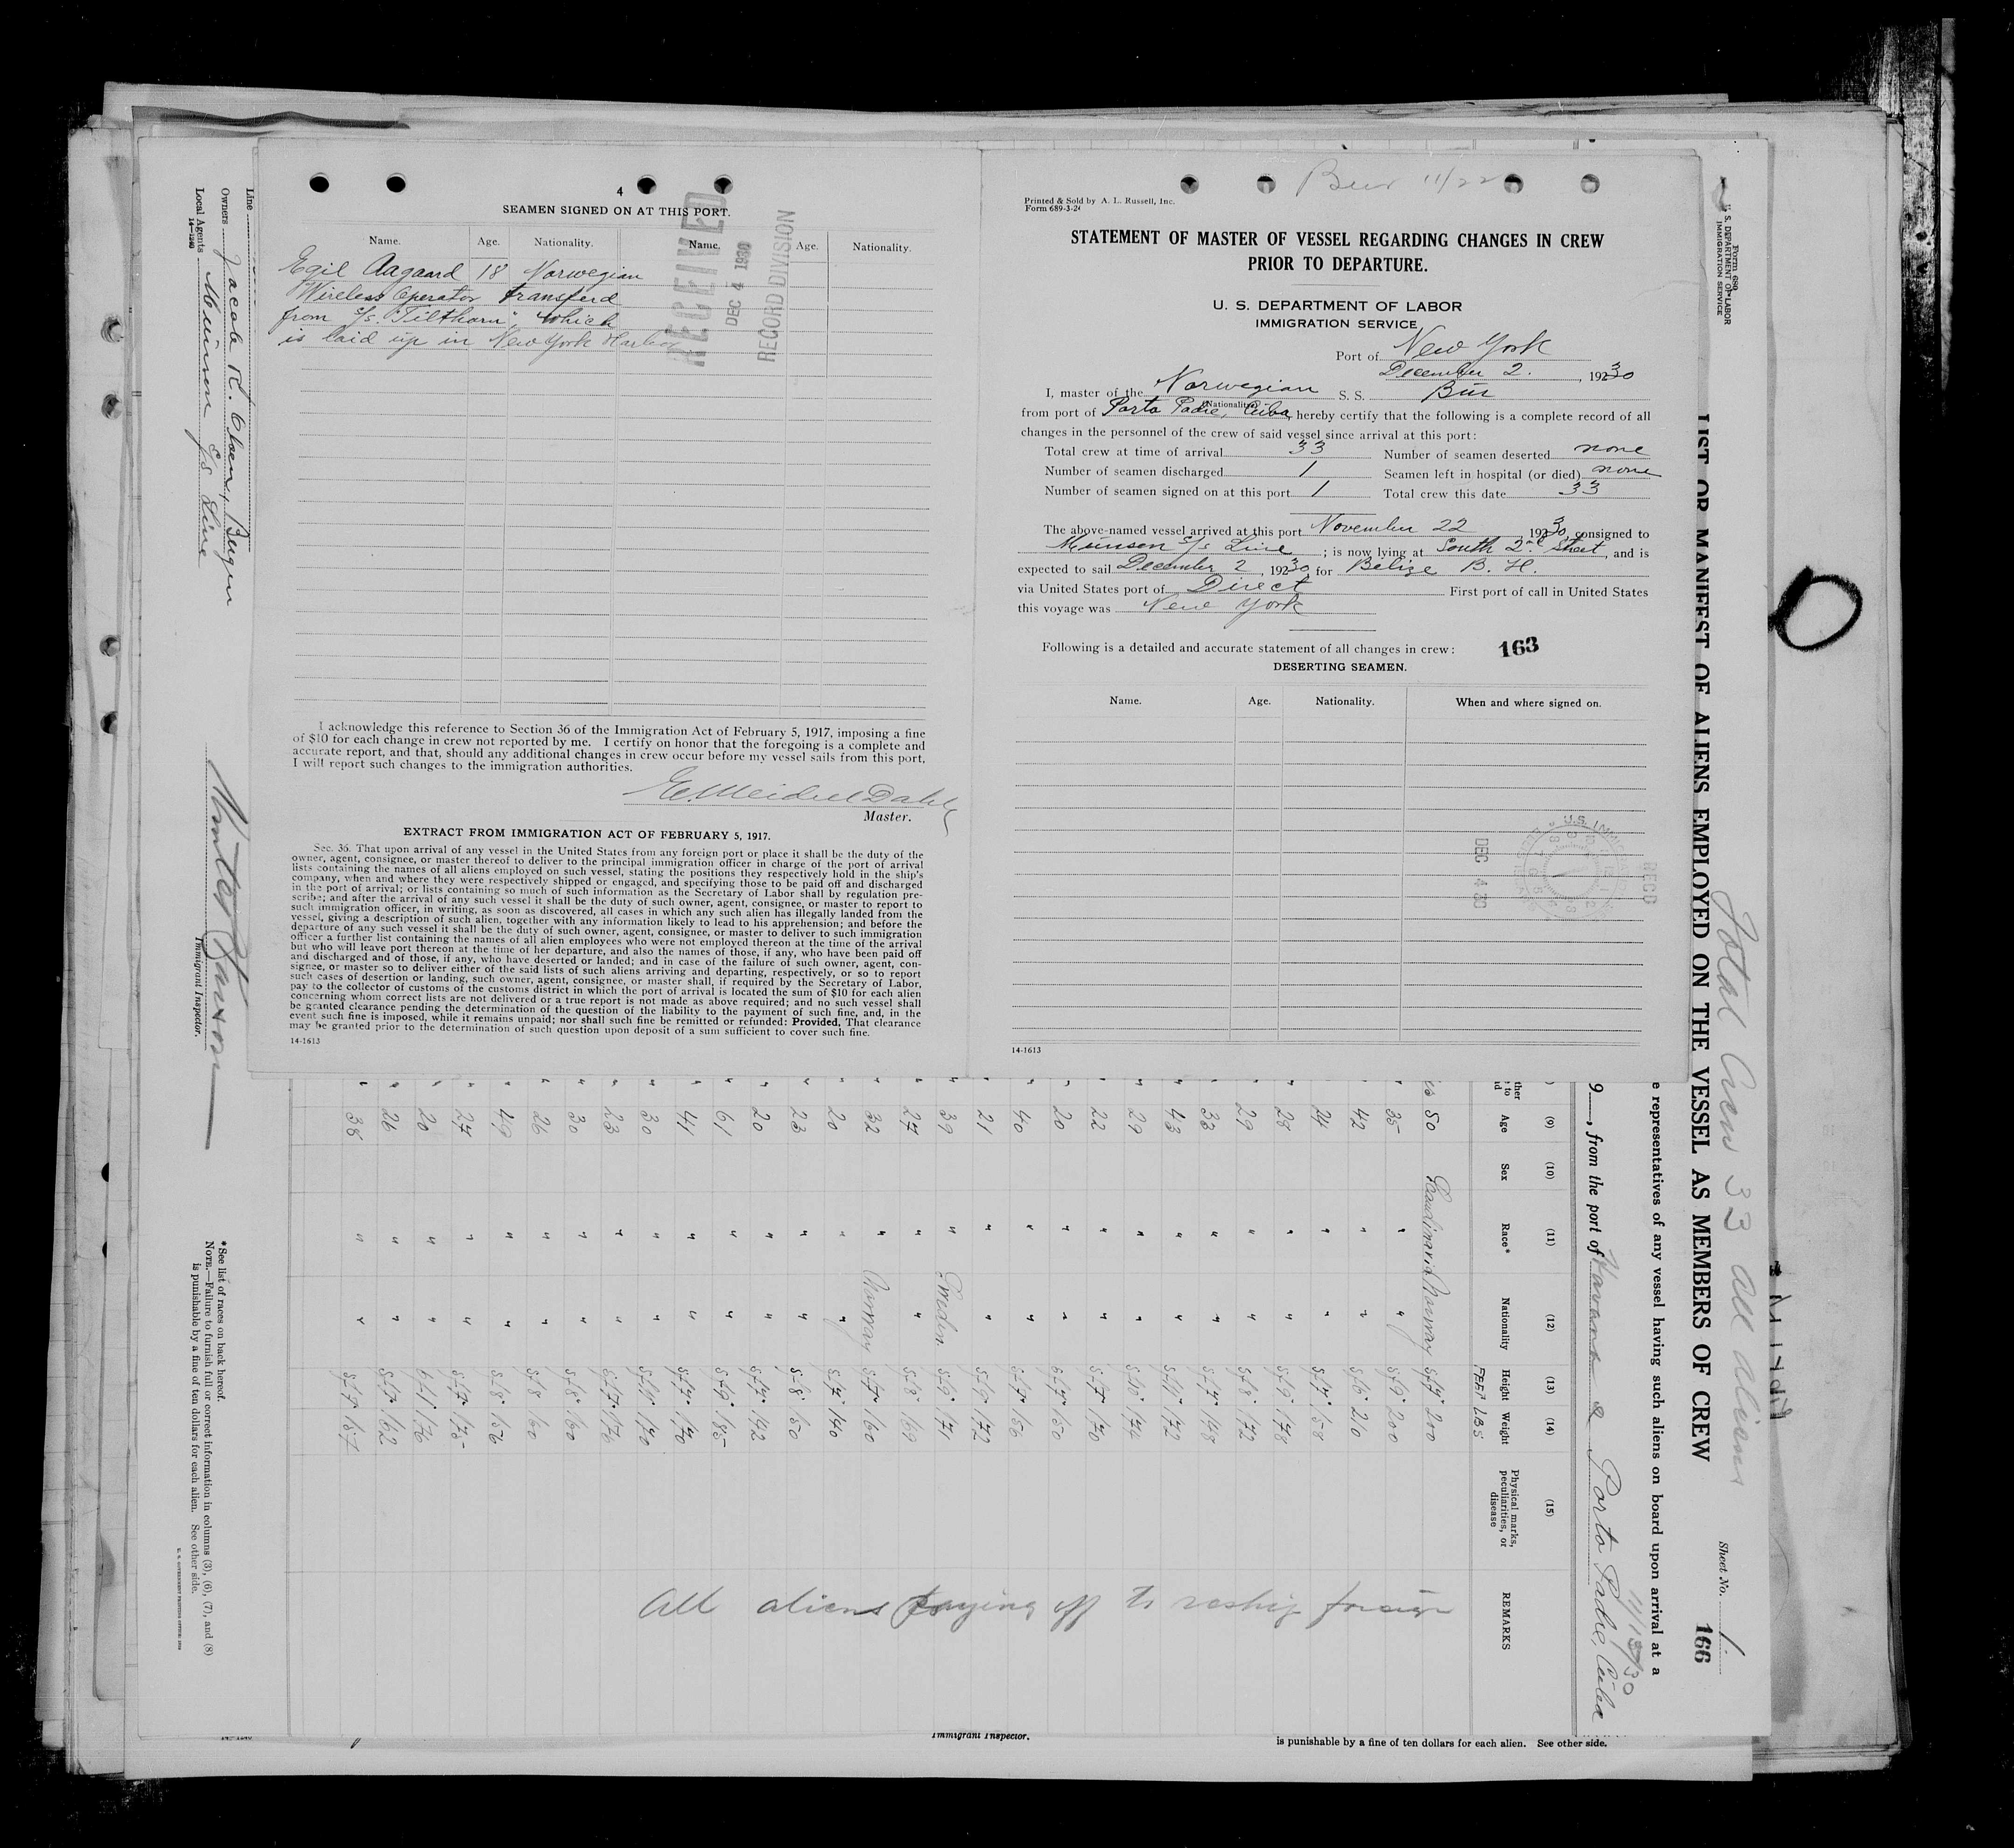 4
SEAMEN SIGNED ON AT THIS PORT.
Name. Age. Nationality. Name. Age. Nationality.
Egil Aagaard 18 Norwegian
Wireless Operator transferd
from s/s "Tilthorn", which
is laid up in New York Harbor
RECEIVED
DEC 4 1930
RECORD DIVISION
I acknowledge this reference to Section 36 of the Immigration Act of February 5, 1917, imposing a fine
of $10 for each change in crew not reported by me. I certify on honor that the foregoing is a complete and
accurate report, and that, should any additional changes in crew occur before my vessel sails from this port,
I will report such changes to the immigration authorities.
Master.
EXTRACT FROM IMMIGRATION ACT OF FEBRUARY 5, 1917.
Sec. 36. That upon arrival of any vessel in the United States from any foreign port or place it shall be the duty of the
owner, agent, consignee, or master thereof to deliver to the principal immigration officer in charge of the port of arrival
lists containing the names of all aliens employed on such vessel, stating the positions they respectively hold in the ship's
company, when and where they were respectively shipped or engaged, and specifying those to be paid off and discharged
in the port of arrival; or lists containing so much of such information as the Secretary of Labor shall by regulation pre-
scribe; and after the arrival of any such vessel it shall be the duty of such owner, agent, consignee, or master to report to
such immigration officer, in writing, as soon as discovered, all cases in which any such alien has illegally landed from the
vessel, giving a description of such alien, together with any information likely to lead to his apprehension; and before the
departure of any such vessel it shall be the duty of such owner, agent, consignee, or master to deliver to such immigration
officer a further list containing the names of all alien employees who were not employed thereon at the time of the arrival
but who will leave port thereon at the time of her departure, and also the names of those, if any, who have been paid off
and discharged and of those, if any, who have deserted or landed; and in case of the failure of such owner, agent, con-
signee, or master so to deliver either of the said lists of such aliens arriving and departing, respectively, or so to report
such cases of desertion or landing, such owner, agent, consignee, or master shall, if required by the Secretary of Labor,
pay to the collector of customs of the customs district in which the port of arrival is located the sum of $10 for each alien
concerning whom correct lists are not delivered or a true report is not made as above required; and no such vessel shall
be granted clearance pending the determination of the question of the liability to the payment of such fine, and, in the
event such fine is imposed, while it remains unpaid; nor shall such fine be remitted or refunded: Provided, That clearance
may be granted prior to the determination of such question upon deposit of a sum sufficient to cover such fine.
14-1613
Bur 11/22
Printed & Sold by A. L. Russell, Inc.
Form 689-3-24
STATEMENT OF MASTER OF VESSEL REGARDING CHANGES IN CREW
PRIOR TO DEPARTURE.
U. S. DEPARTMENT OF LABOR
IMMIGRATION SERVICE
Port of New York
December 2. , 1930
I, master of the Norwegian S. S. Bur
(Nationality)
from port of Porto Padre, Cuba, hereby certify that the following is a complete record of all
changes in the personnel of the crew of said vessel since arrival at this port:
Total crew at time of arrival 33 Number of seamen deserted none
Number of seamen discharged 1 Seamen left in hospital (or died) none
Number of seamen signed on at this port 1 Total crew this date 33
The above-named vessel arrived at this port November 22 1930, consigned to
Munson s/s Line ; is now lying at South 2nd Street, and is
expected to sail December 2, 1930 for Belize B. H.
via United States port of Direct First port of call in United States
this voyage was New York
Following is a detailed and accurate statement of all changes in crew: 163
DESERTING SEAMEN.
Name. Age. Nationality. When and where signed on.
DEC 4 30
REC'D
14-1613
Form 689
U. S. DEPARTMENT OF LABOR
IMMIGRATION SERVICE
Total Crew 33 all aliens
Sheet No. 1
166
LIST OR MANIFEST OF ALIENS EMPLOYED ON THE VESSEL AS MEMBERS OF CREW
e representatives of any vessel having such aliens on board upon arrival at a
9 , from the port of Havana & Porto Padre, Cuba
(9) (10) (11) (12) (13) (14) (15)
Age Sex Race* Nationality Height Weight Physical marks, peculiarities, or disease REMARKS
FEET LBS
50 Scandinavia Norway 5'7" 200
35 " " 5'9" 200
42 " " 5'6" 210
24 " " 5'7" 158
28 " " 5'9" 178
29 " " 5'8" 172
33 " " 5'7" 148
43 " " 5'11" 172
29 " " 5'10" 174
22 " " 5'7" 170
20 " " 5'7" 150
40 " " 5'7" 156
21 " " 5'9" 172
39 " Sweden. 5'9" 171
27 " " 5'8" 149
32 " Norway 5'7" 160
20 " " 5'7" 140
23 " " 5'8" 150
20 " " 5'7" 142
61 " " 5'9" 185
41 " " 5'7" 170
30 " " 5'11" 170
23 " " 5'7" 176
30 " " 5'8" 160
26 " " 5'8" 160
49 " " 5'8" 156
27 " " 5'7" 175
20 " " 6'1" 176
26 " " 5'7" 162
38 " " 5'7" 157
All aliens paying off to reship foreign
Line
Owners Jacob R. Olsen, Bergen
Local Agents Munson S/S Line
14-1240
Immigrant Inspector.
*See list of races on back hereof.
NOTE.—Failure to furnish full or correct information in columns (3), (6), (7), and (8)
is punishable by a fine of ten dollars for each alien. See other side.
Immigrant Inspector.
is punishable by a fine of ten dollars for each alien. See other side.